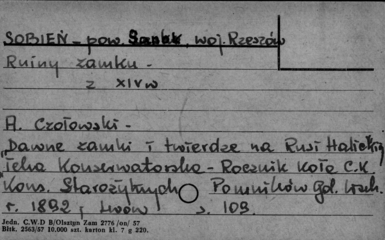 SOBIEŃ - pow. Sanok, woj. Rzeszów
Ruiny zamku -
z XIV w
A. Czołowski -
Dawne zamki i twierdze na Rusi Halickiej
Teka Konserwatorska - Rocznik Koła C.K.
Kons. Starożytnych Pomników Gal. Wsch.
r. 1892, Lwów s. 103.
Jedn. C.W.D B/Olsztyn Zam 2776 /on/ 57
Bltk. 2563/57 10.000 szt. karton kl. 7 g 220.